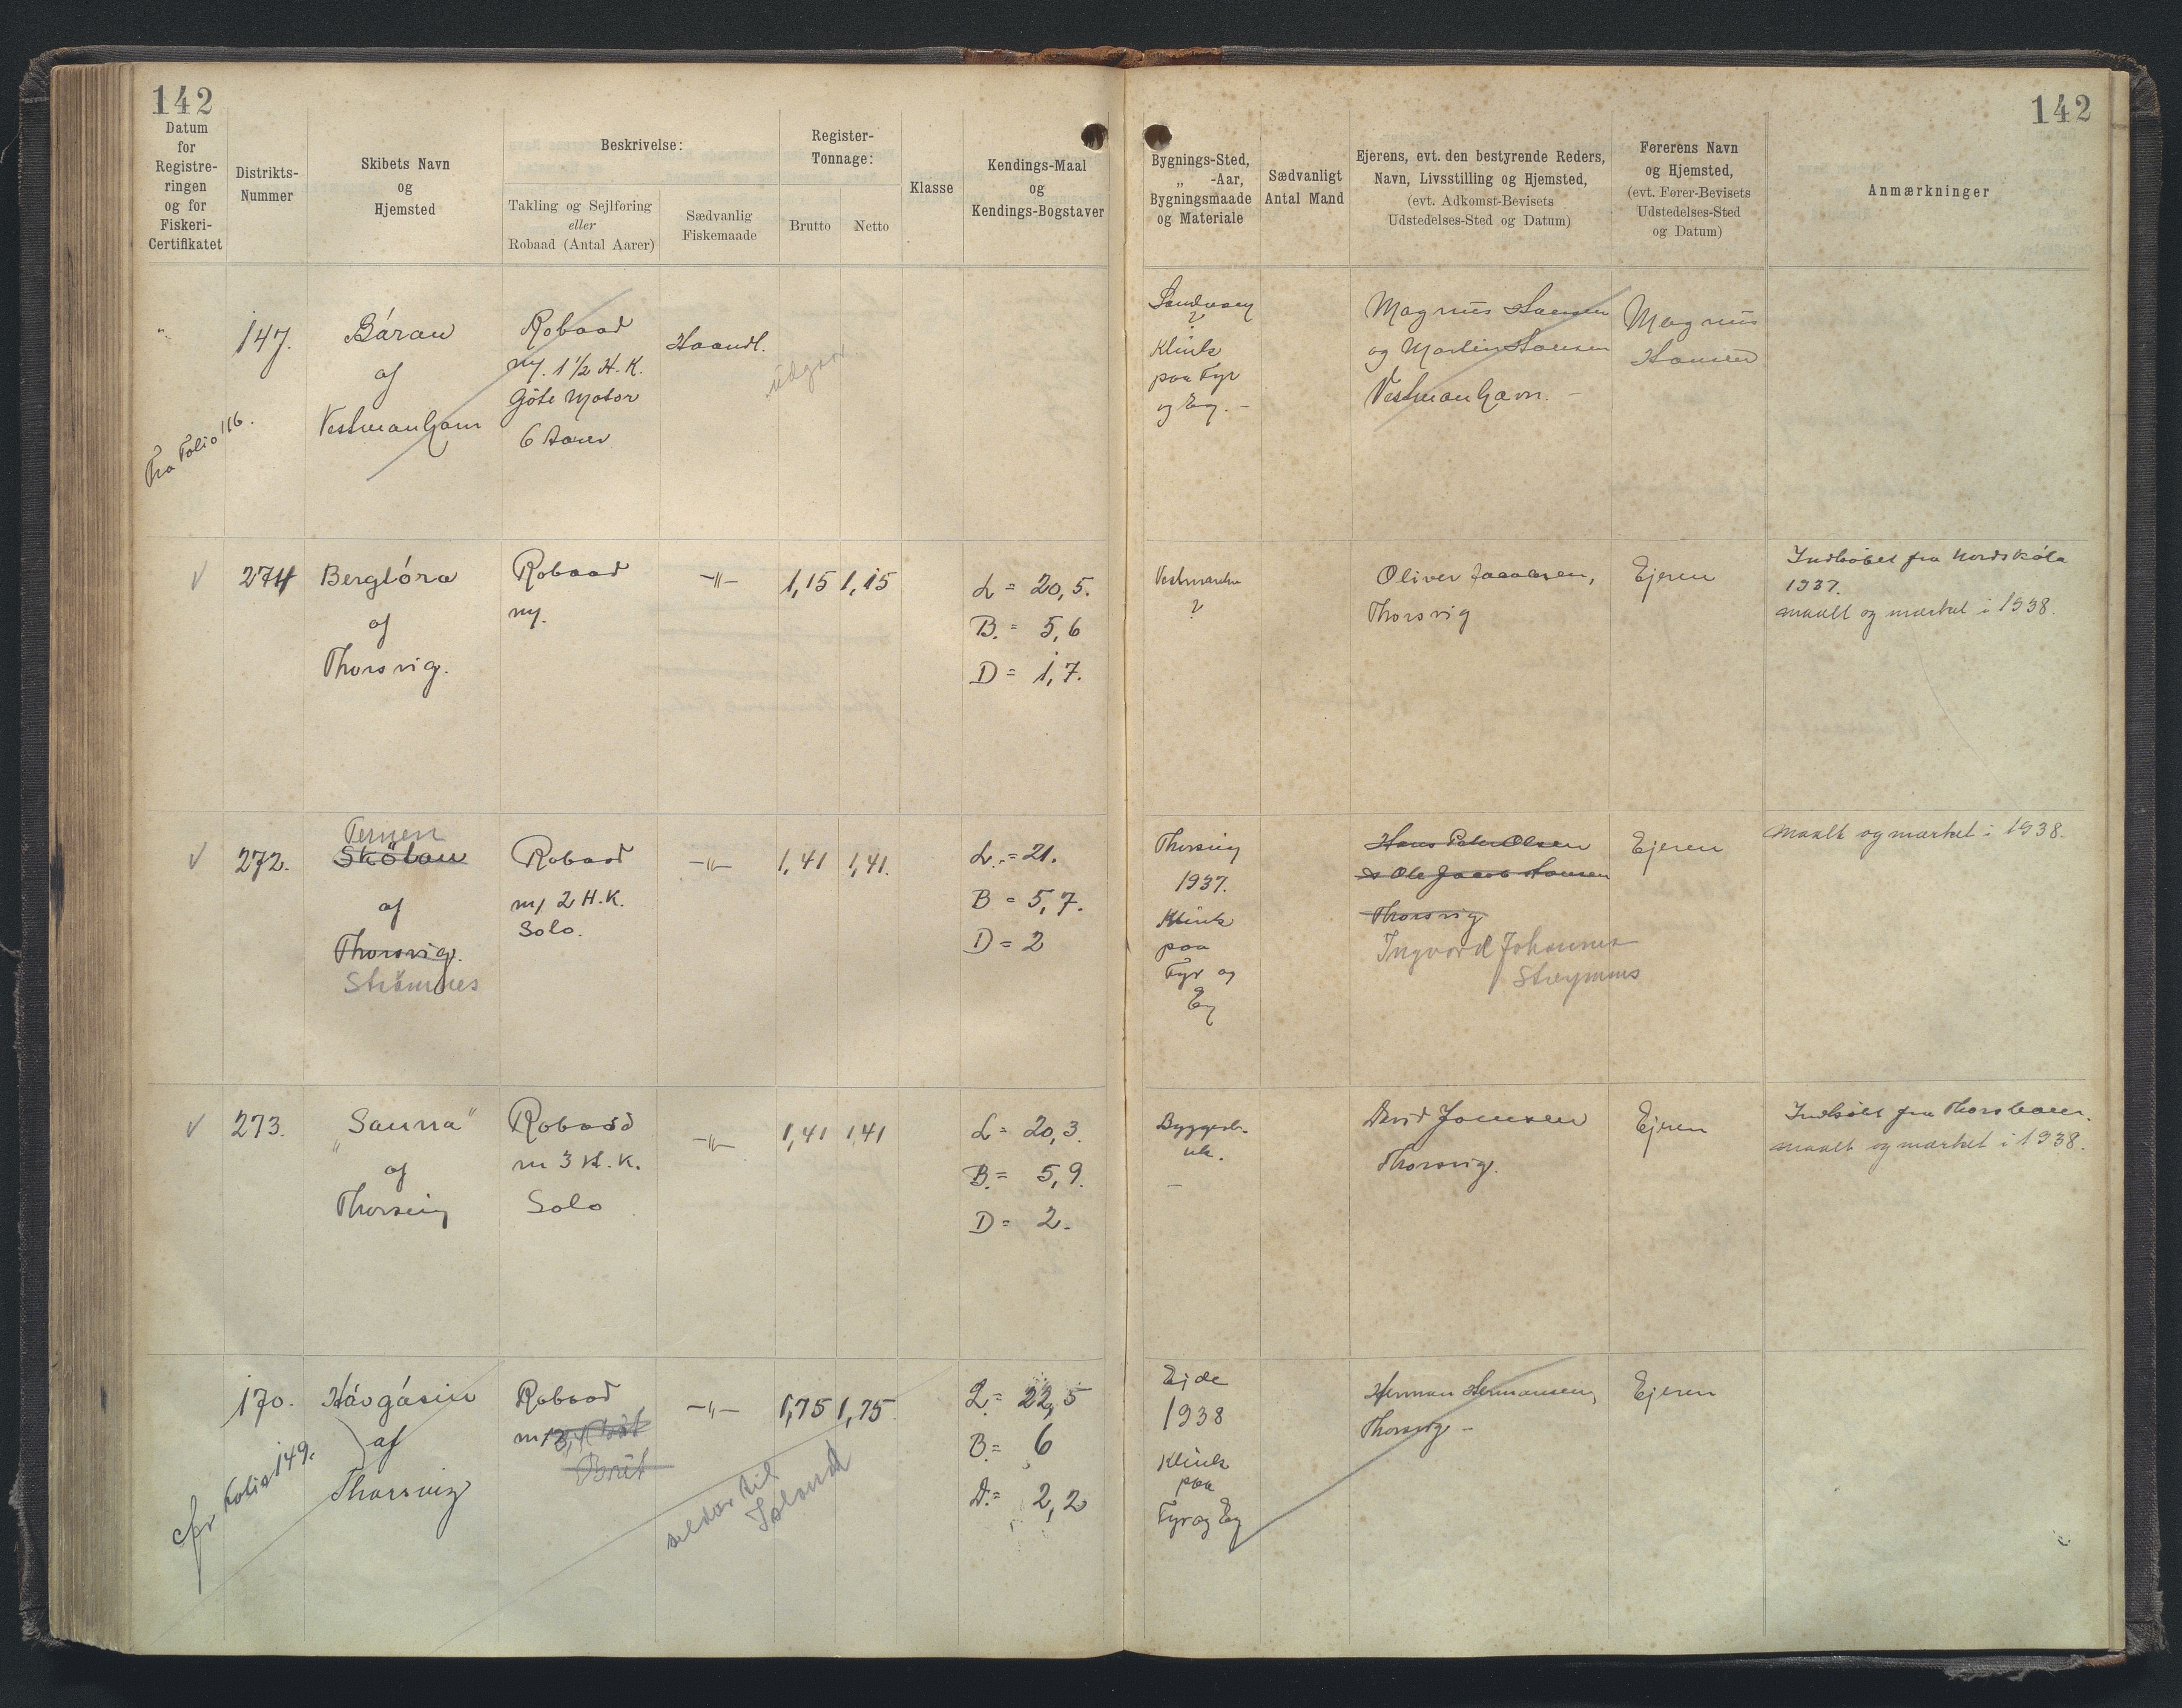 142
142
Datum
for
Registre-
ringen
og for
Fiskeri-
Certifikatet
Distrikts-
Nummer
Skibets Navn
og
Hjemsted
Beskrivelse:
Takling og Sejlføring
eller
Robaad (Antal Aarer)
Sædvanlig
Fiskemaade
Register-
Tonnage:
Brutto
Netto
Klasse
Kendings-Maal
og
Kendings-Bogstaver
Bygnings-Sted,
„ -Aar,
Bygningsmaade
og Materiale
Sædvanligt
Antal Mand
Ejerens, evt. den bestyrende Reders,
Navn, Livsstilling og Hjemsted,
(evt. Adkomst-Bevisets
Udstedelses-Sted og Datum)
Førerens Navn
og Hjemsted,
(evt. Fører-Bevisets
Udstedelses-Sted
og Datum)
Anmærkninger
"
Fra Folio 116.
147.
Báran
af
Vestmanhavn
Robaad
m/. 1 1/2 H.K.
Göte Motor
6 Aarer
Haandl.
útgár
?
Klink
paa Fyr
og Eg. –
Magnus Hansen
og Martin Hansen
Vestmanhavn. –
Magnus
Hansen
√
274
Berglóra
af
Thorsvig.
Robaad
m/.
-"-
1,15 1,15
L = 20,5.
B. = 5,6
D = 1,7.
Vestmanhn
?
Oliver Jacobsen,
Thorsvig
Ejeren
Indkøbet fra Nordskála
1937.
maalt og mærket i 1938.
√
272.
Ternen
Skötan
af
Thorsvig.
Strömnes
Robaad
m/ 2 H.K.
Solo.
-"-
1,41 1,41.
L. = 21.
B = 5,7.
D = 2
Thorsvig
1937.
Klink
paa
Fyr og
Eg
Hans Peter Olsen
& Ole Jacob Hansen
Thorsvig
Ingvard Johannes
Streymnes
Ejeren
maalt og mærket i 1938.
√
273.
„Sanna"
af
Thorsvig
Robaad
m 3 H.K.
Solo
-"-
1,41 1,41
L = 20,3.
B. = 5,9.
D = 2.
Byggest.
uk.
–
David Joensen
Thorsvig.
Ejeren
Indkøbt fra Thorshavn.
maalt og mærket i 1938.
cfr Folio 149.
170.
Hávgásin
af
Thorsvig
Robaad
Brit
-"-
1,75 1,75
seldur til
Island
L = 22,5
B = 6
D. = 2,2
Ejde
1938
Klink
paa
Fyr og Eg
Herman Hermansen,
Thorsvig –
Ejeren